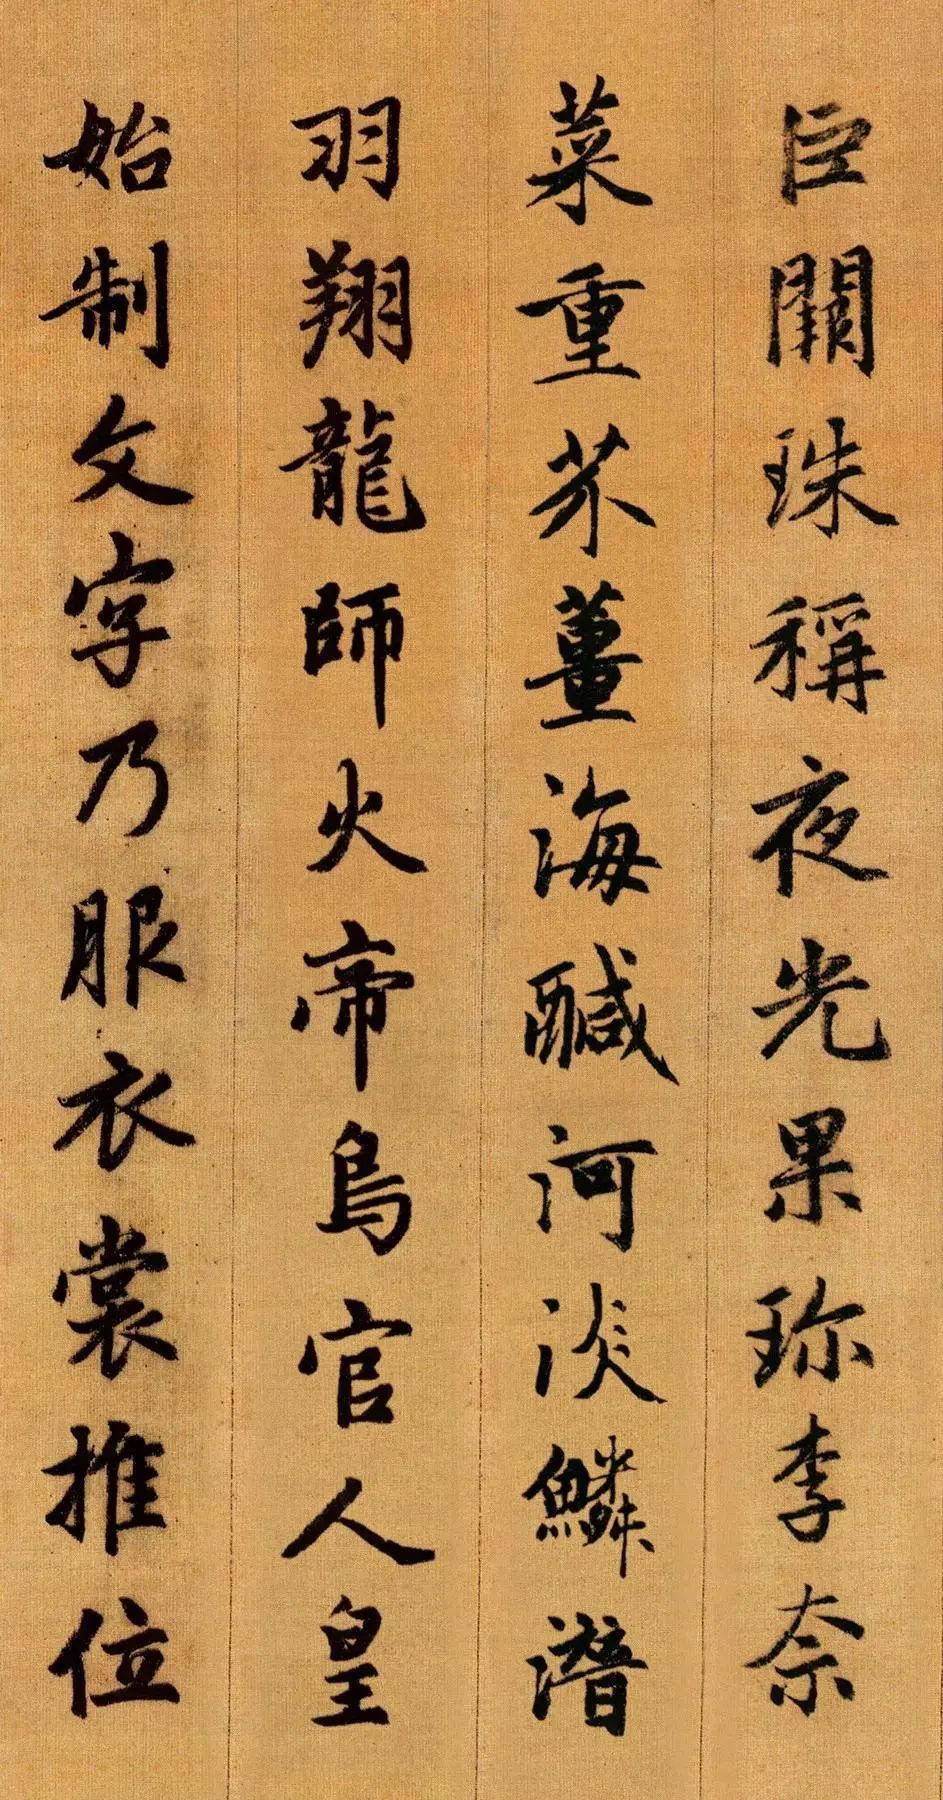 巨闕珠稱夜光果珎李奈
菜重芥薑海醎河淡鱗潛
羽翔龍師火帝鳥官人皇
始制文字乃服衣裳推位